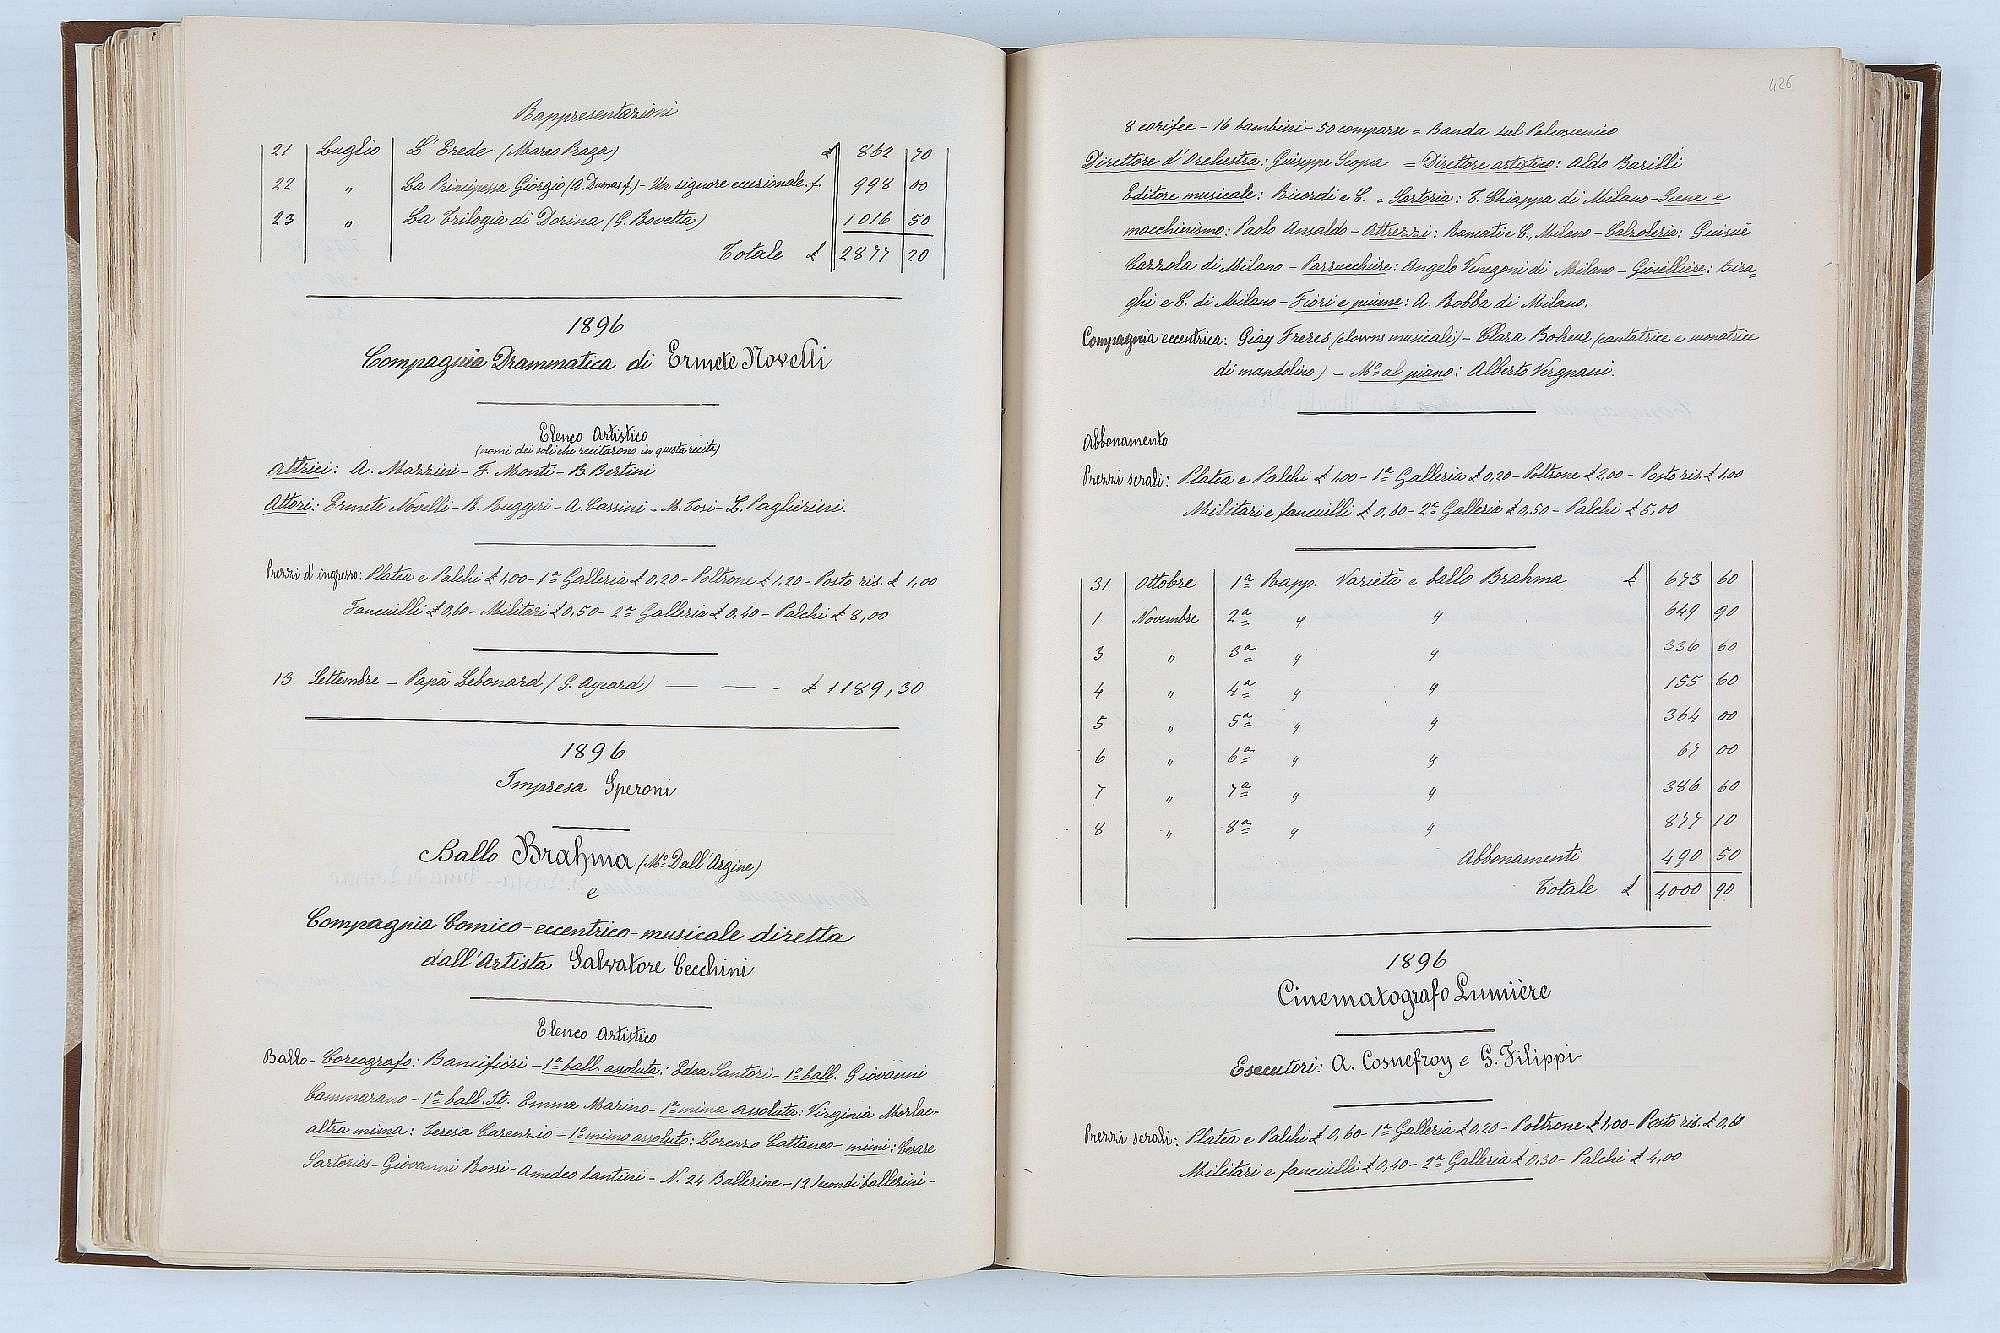 Rappresentazioni
21 Luglio L'Erede (Marco Praga) £ 862 70
22 " La Principessa Giorgio (A. Dumas f.) - Un signore eccezionale. f. 998 00
23 " La Trilogia di Dorina (G. Rovetta) 1016 50
Totale £ 2877 20
1896
Compagnia Drammatica di Ermete Novelli
Elenco Artistico
(nomi dei soli che recitarono in questa recita)
Attrici: A. Mazzini - F. Monti - B. Bertini
Attori: Ermete Novelli - R. Ruggeri - A. Cassini - M. Tosi - L. Paglierini.
Prezzi d'ingresso: Platea e Palchi £ 1,00 - 1ª Galleria £ 0,20 - Poltrone £ 1,20 - Posto ris. £ 1,00
Fanciulli £ 0,60 - Militari £ 0,50 - 2ª Galleria £ 0,40 - Palchi £ 8,00
13 Settembre - Papà Lebonard (G. Aycard) — — - £ 1189,30
1896
Impresa Speroni
Ballo Brahma (Mº Dall'Argine)
e
Compagnia Comico-eccentrico-musicale diretta
dall'Artista Salvatore Cecchini
Elenco Artistico
Ballo - Coreografo: Bancifiori - 1ª ball. assoluta: Edea Santori - 1º ball. Giovanni
Cammarano - 1ª ball. It. Emma Marino - 1ª mima assoluta: Virginia Morlac-
altra mima: Teresa Carenzio - 1º mimo assoluto: Lorenzo Cattaneo - mimi: Cesare
Sartorios - Giovanni Bossi - Amedeo Santini - N. 24 Ballerine - 12 secondi ballerini -
426
8 corifee - 16 bambini - 50 comparse = Banda sul Palcoscenico
Direttore d'Orchestra: Giuseppe Scopa = Direttore artistico: Aldo Barilli
Editore musicale: Ricordi e C. - Sartoria: F. Chiappa di Milano - Scene e
macchinismo: Paolo Ansaldo - Attrezzi: Rancati e C., Milano - Calzoleria: Guisuè
Cazzola di Milano - Parrucchiere: Angelo Venegoni di Milano - Gioielliere: Bira-
ghi e C. di Milano - Fiori e piume: A. Bobba di Milano.
Compagnia eccentrica: Giay Freres (clowns musicali) - Clara Boheur (cantatrice e suonatrice
di mandolino) - Mº al piano: Alberto Vergnani.
Abbonamento
Prezzi serali: Platea e Palchi £ 1,00 - 1ª Galleria £ 0,20 - Poltrone £ 2,00 - Posto ris. £ 1,00
Militari e fanciulli £ 0,60 - 2ª Galleria £ 0,50 - Palchi £ 5,00
31 Ottobre 1ª Rapp. Varietà e ballo Brahma £ 673 60
1 Novembre 2ª " " 649 90
3 " 3ª " " 336 60
4 " 4ª " " 155 60
5 " 5ª " " 364 00
6 " 6ª " " 67 00
7 " 7ª " " 386 60
8 " 8ª " " 877 10
Abbonamenti 490 50
Totale £ 4000 90
1896
Cinematografo Lumière
Esecutori: A. Cosnefroy e G. Filippi
Prezzi serali: Platea e Palchi £ 0,60 - 1ª Galleria £ 0,20 - Poltrone £ 1,00 - Posto ris. £ 0,60
Militari e fanciulli £ 0,40 - 2ª Galleria £ 0,30 - Palchi £ 4,00